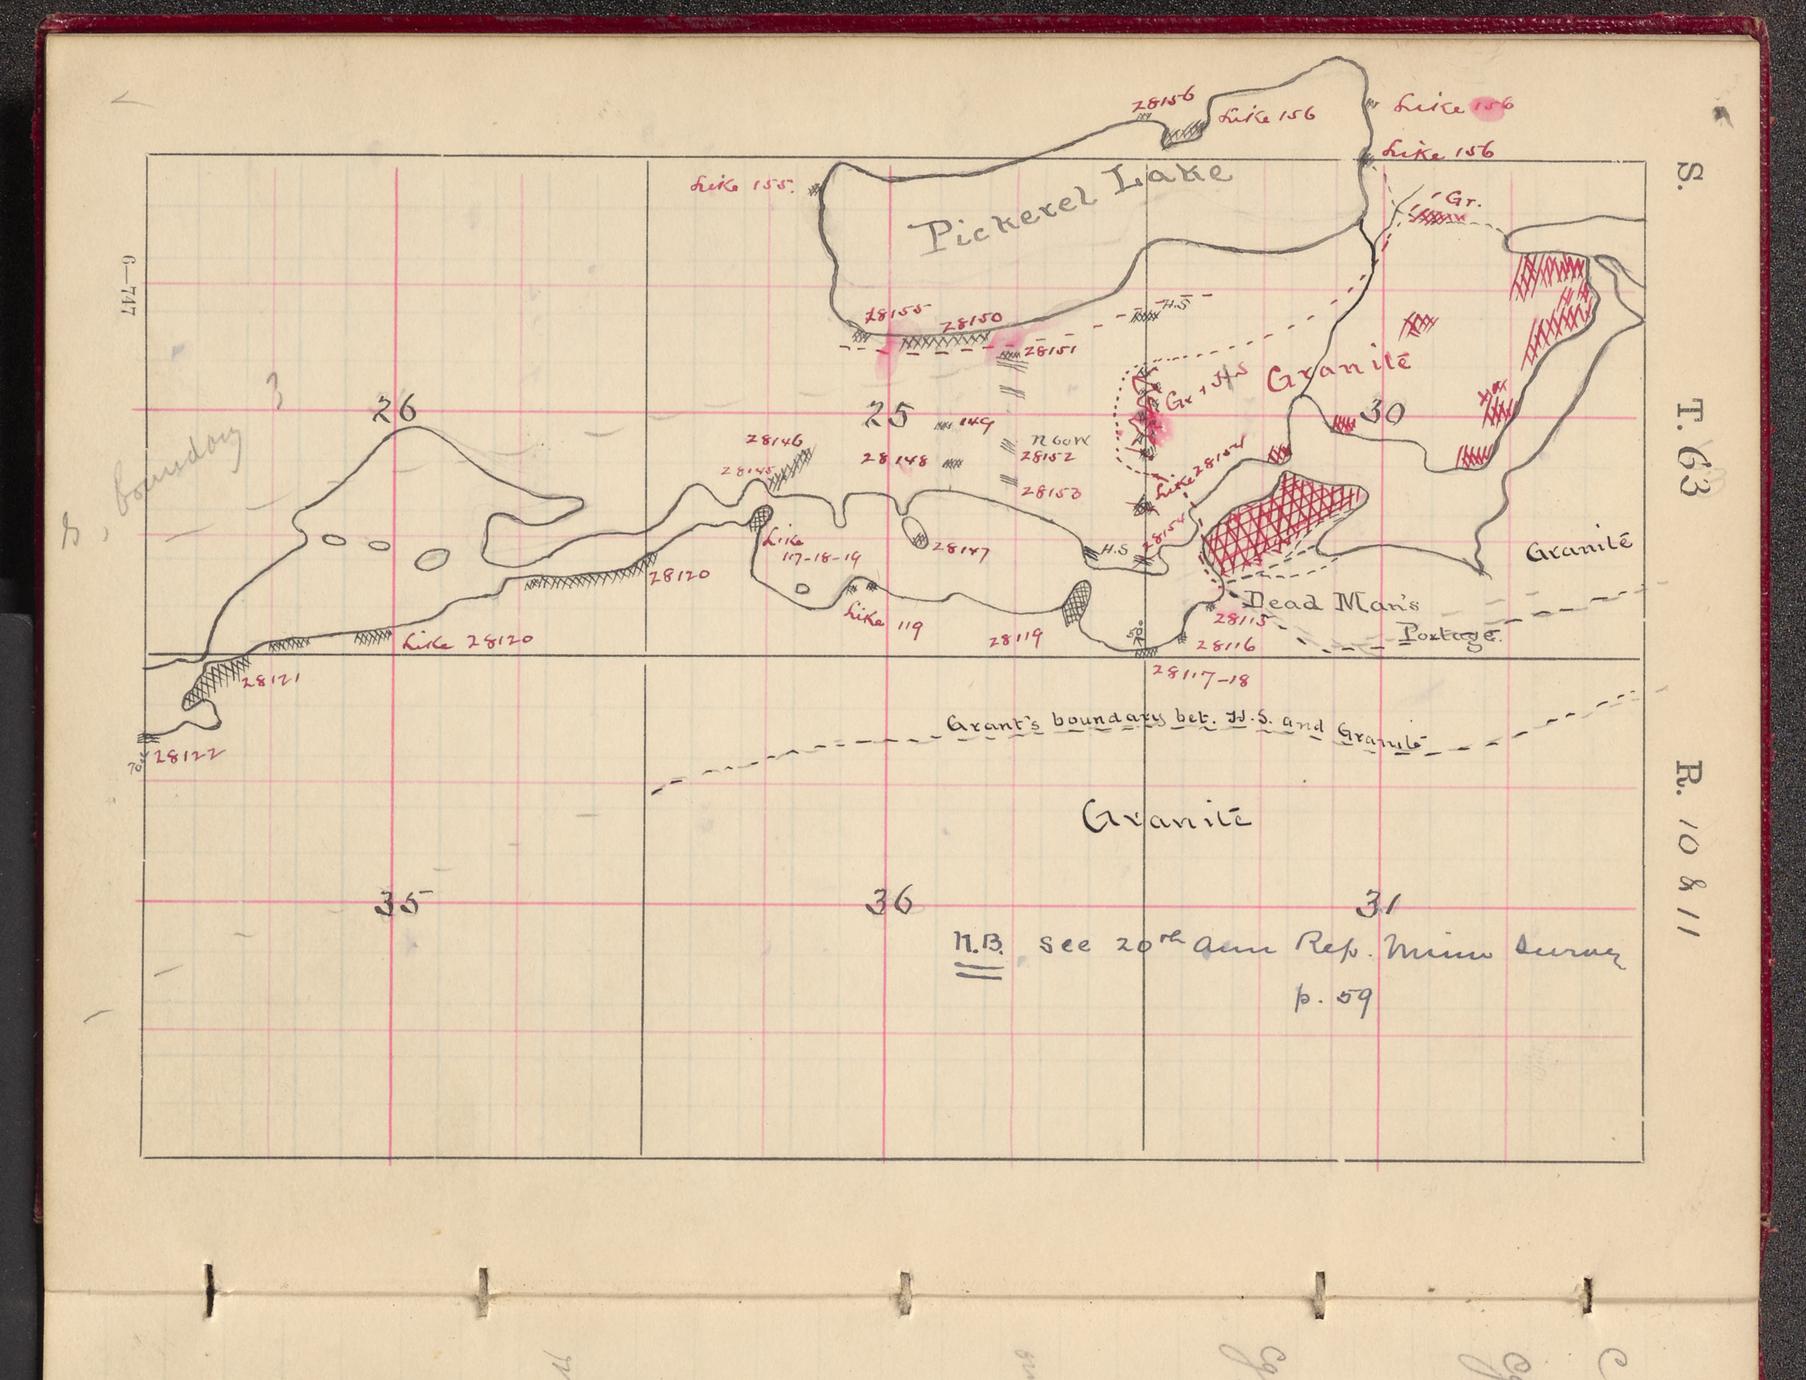 28156
Like 156
Like 156
Like 156
Like 155.
Pickerel Lake
Gr.
S.
6—747
28155
28150
H.S
28151
Gr + H.S
Granite
T. 63
26
25
149
30
3
N 60 W
28146
28145
28148
28152
28153
Like 28154
S, boundary
Like
117-18-19
28147
H.S
28154
Granite
28120
Like 119
28119
28115
Dead Man's
Portage.
28116
Like 28120
28117-18
28121
28122
Grant's boundary bet. H.S. and Granite
R. 10 & 11
Granite
35
36
31
N.B. see 20th Ann Rep. Minn Survey
p. 59